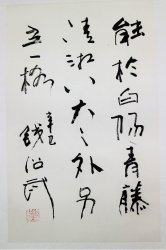 能於白陽青藤
清湘八大之外另
立一格
辛巳
錢君匋